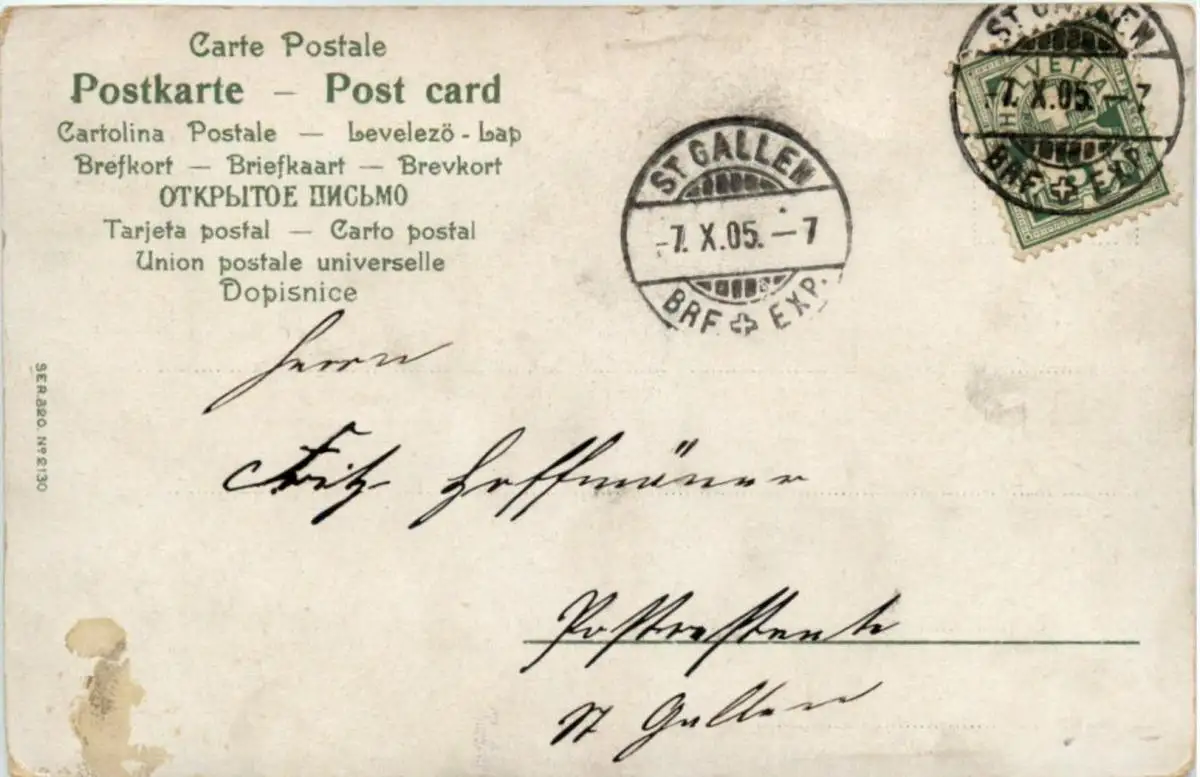 Carte Postale
Postkarte — Post card
Cartolina Postale — Levelező-Lap
Brefkort — Briefkaart — Brevkort
ОТКРЫТОЕ ПИСЬМО
Tarjeta postal — Carto postal
Union postale universelle
Dopisnice
ST GALLEN
-7. X.05.—7
BRF. EXP.
ST GALLEN
HELVETIA
-7. X.05.—7
BRF. EXP.
SER. 320. No 2130
Herrn
Fritz
Postrestante
St Gallen